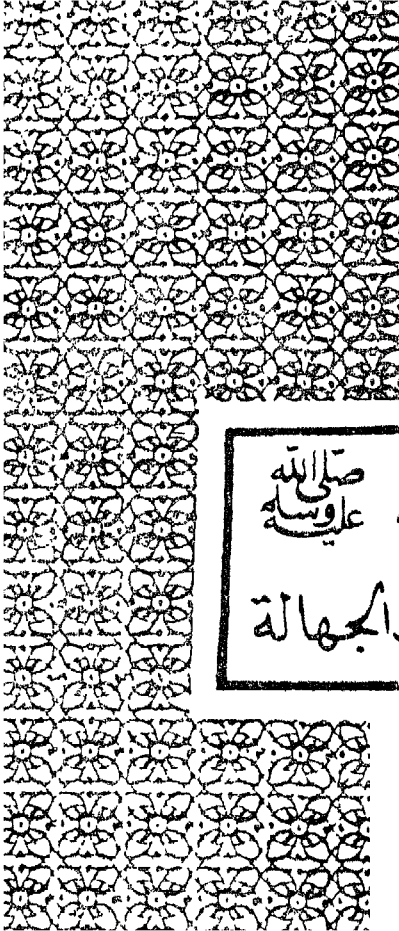 صلى الله
عليه وسلم
الجهالة